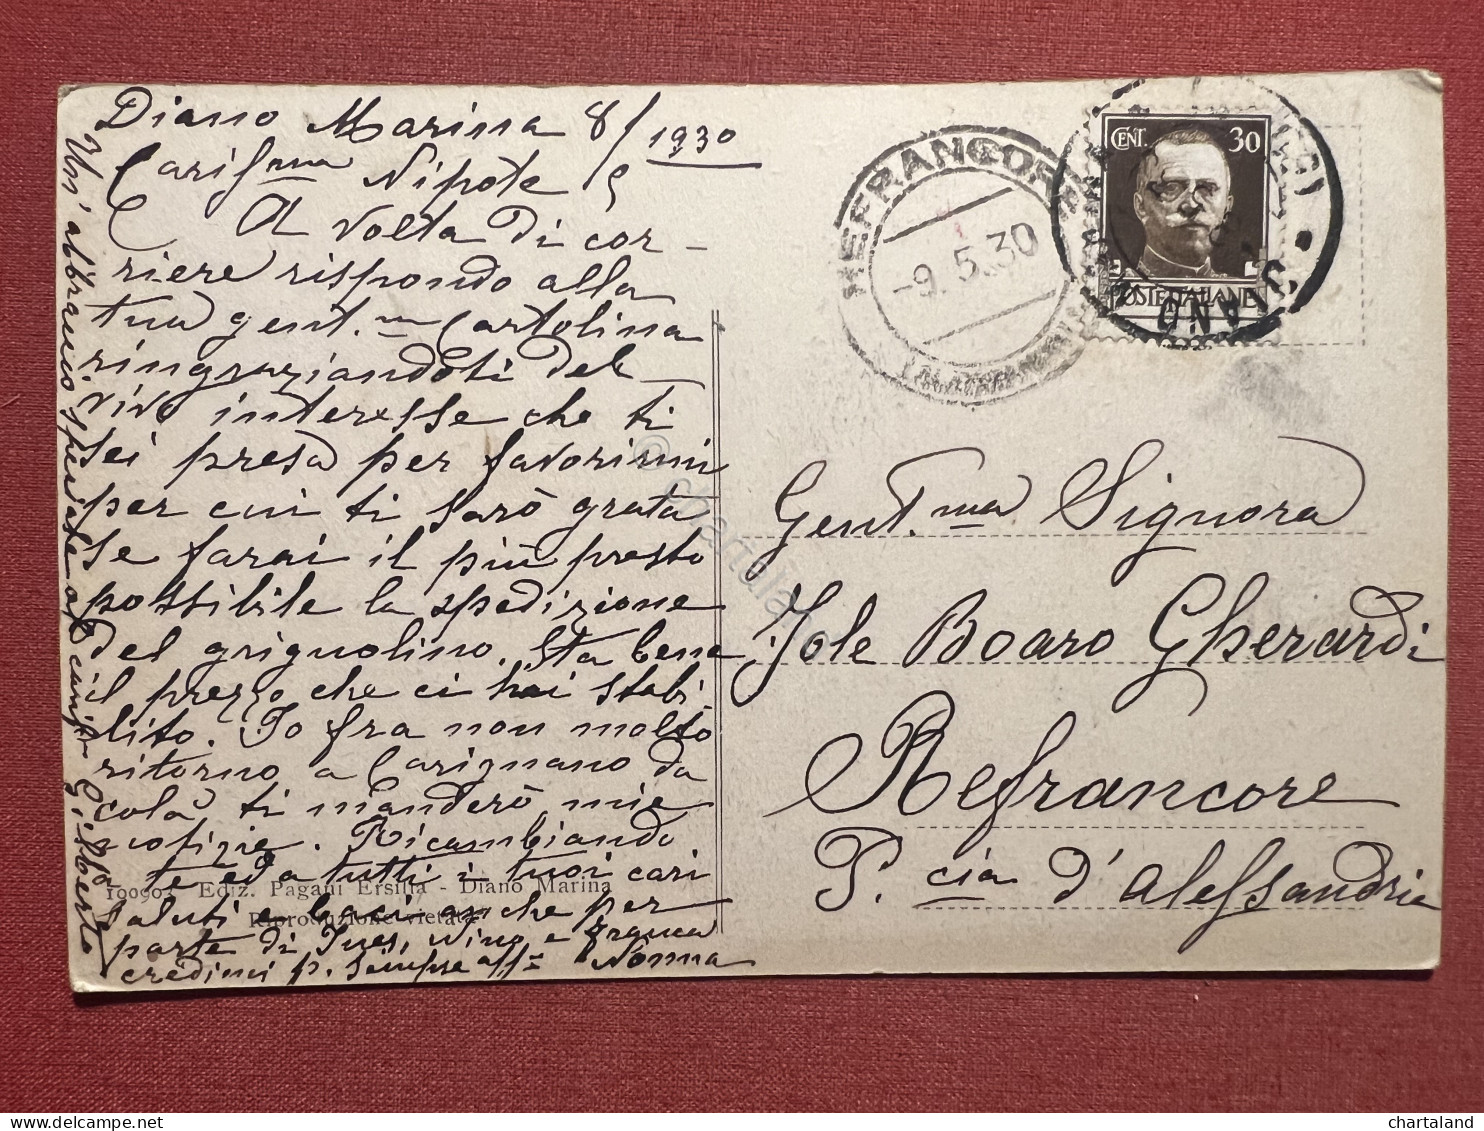 Diano Marina 8/1930
Carisma Nipote
A volta di cor-
riere rispondo alla
tua gent.ma Cartolina
ringraziandoti del
vivo interesse che ti
sei presa per favorirmi
per cui ti sarò grata
se farai il più presto
possibile la spedizione
del grignolino. Sta bene
il prezzo che ci hai stabi
lito. Io fra non molto
ritorno a Carignano da
colà ti manderò mie
notizie. Ricambiando
a te ed a tutti i tuoi cari
saluti e baci anche per
parte di Ines, Nino e Franca
credimi p. sempre aff. Nonna
Un' abbraccio speciale al
Gilberto
19090 Ediz. Pagani Ersilia - Diano Marina
Riproduzione vietata
REFRANCORE
-9.5.30
ALESSANDRIA
CENT. 30
POSTE ITALIANE
DIANO
Gent.ma Signora
Iole Boaro Gherardi
Refrancore
P.cia d'Alessandria
© chartaland
chartaland